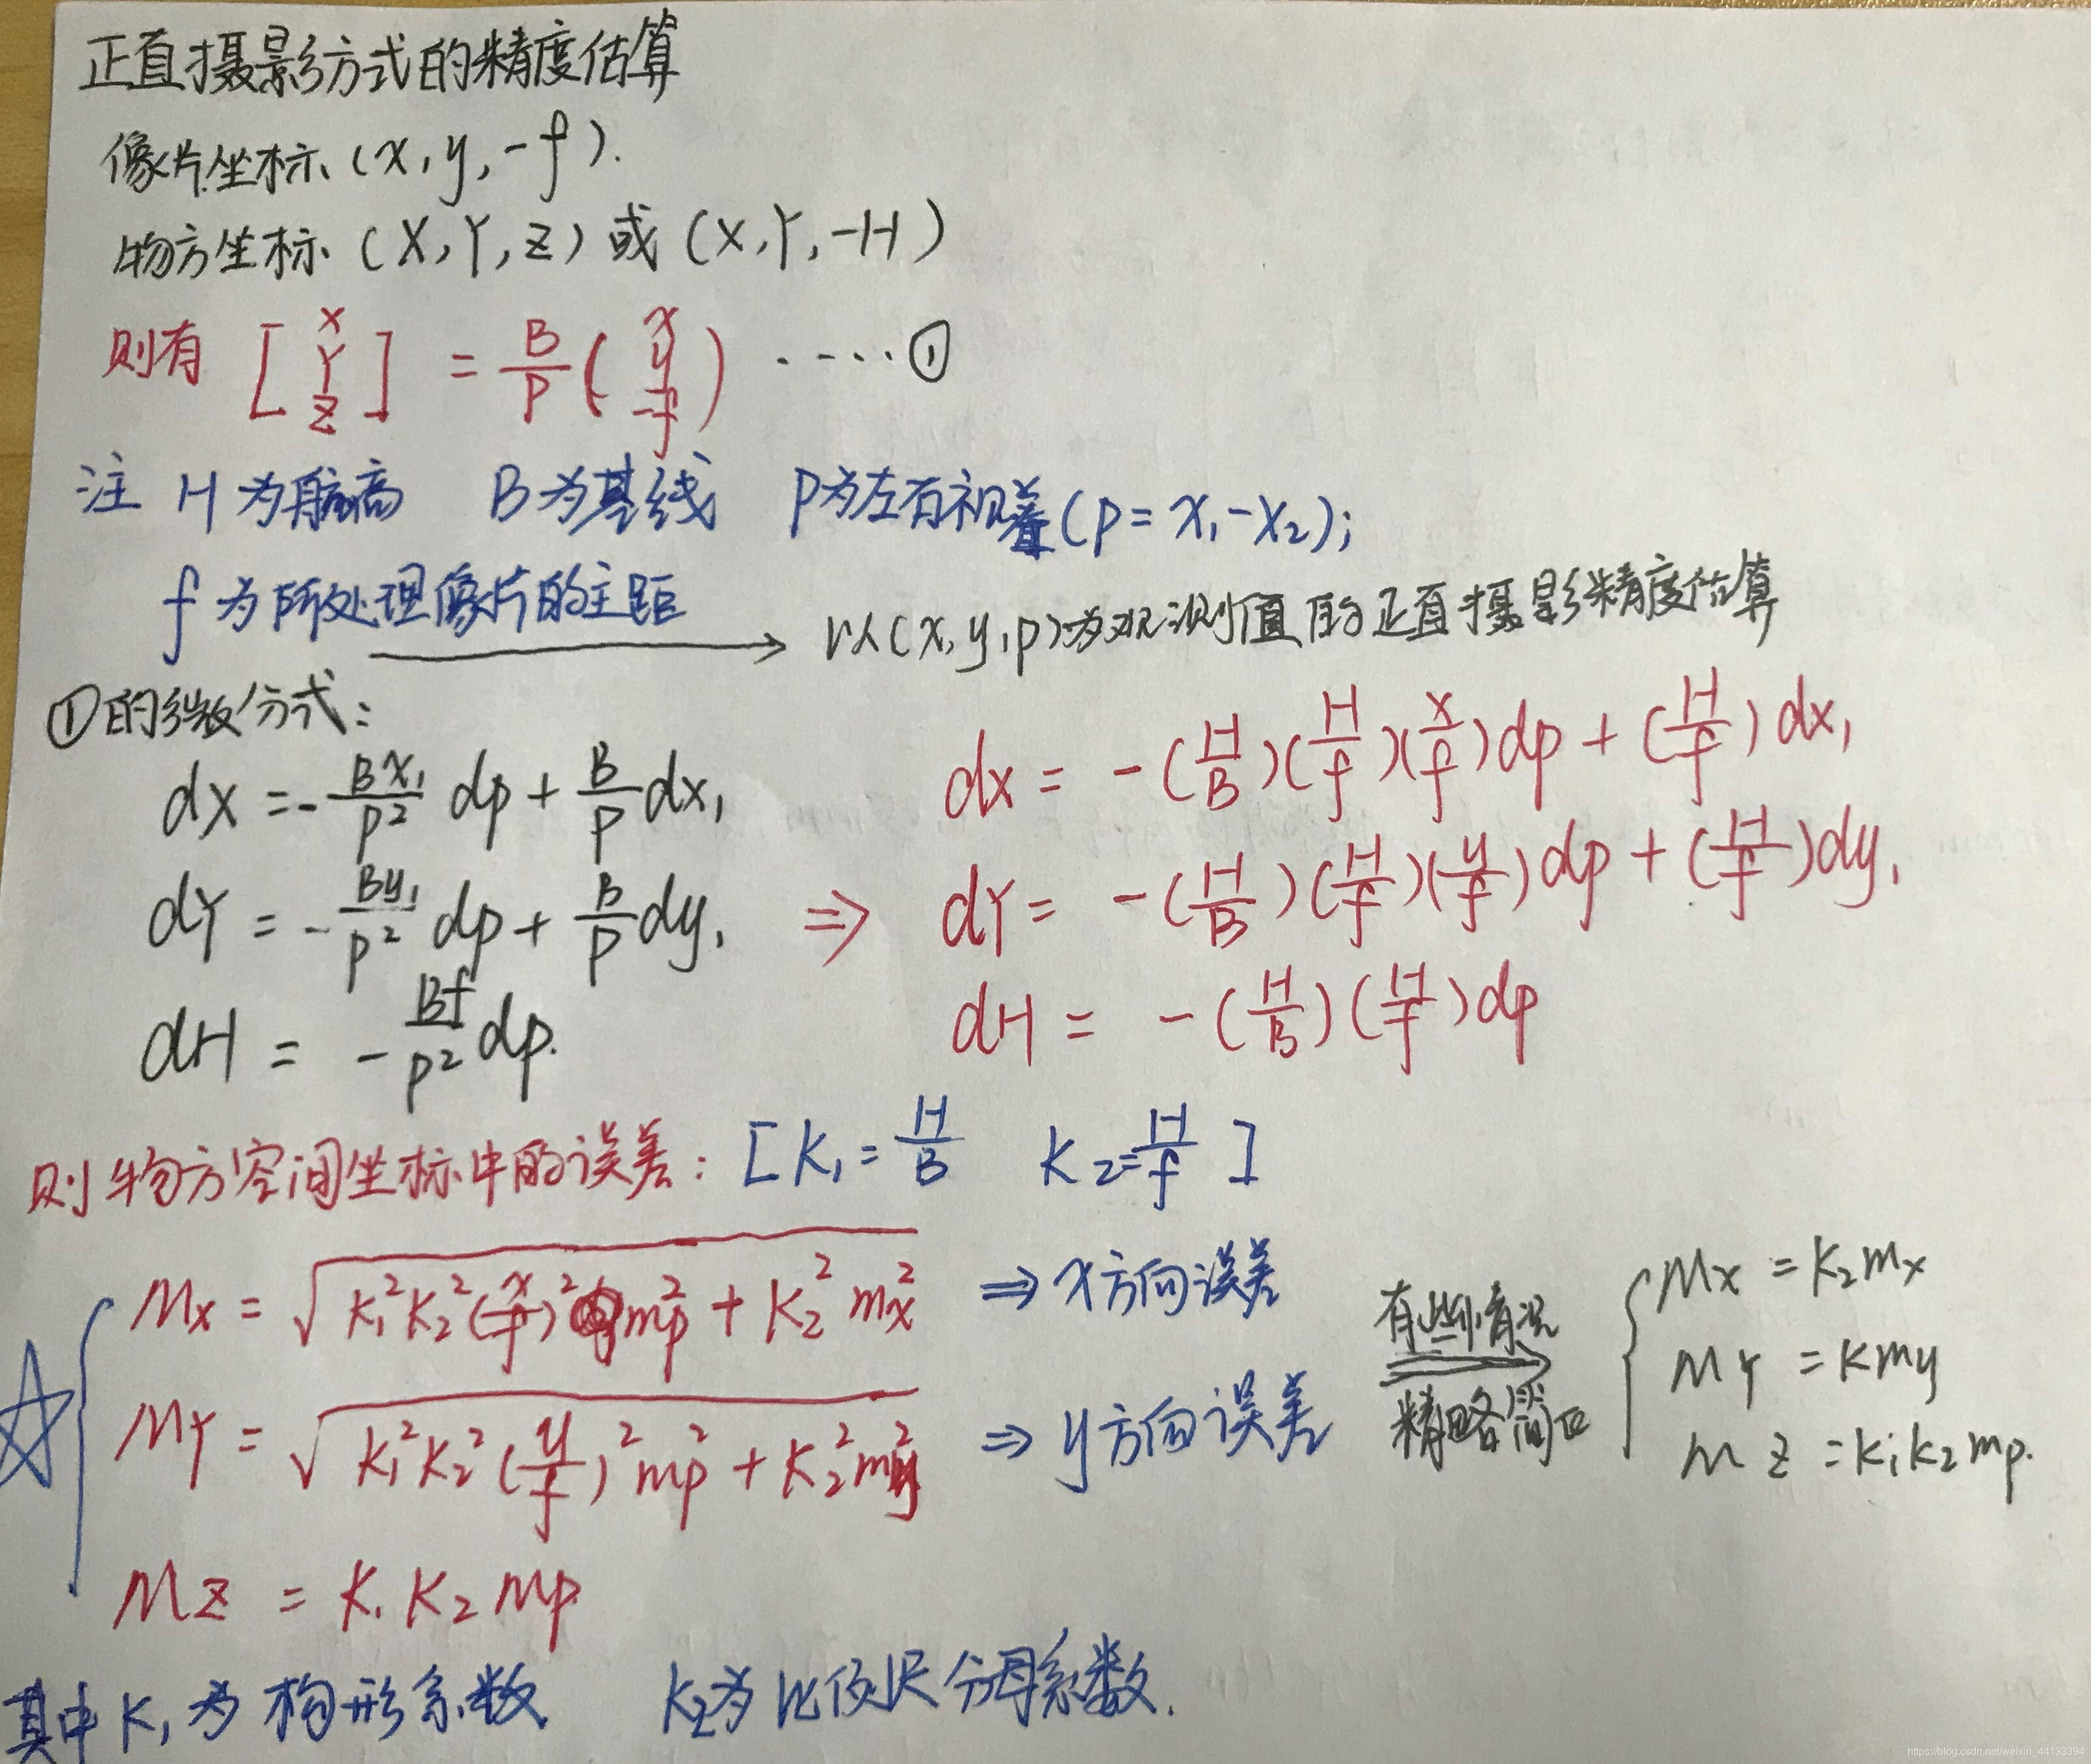 正直摄影方式的精度估算
像片坐标 (x, y, -f).
物方坐标 (X, Y, Z) 或 (X, Y, -H)
则有 [X Y Z] = B/P (x y -f) ····· ①
注 H为航高 B为基线 P为左右视差 (P = x₁ - x₂);
f为所处理像片的主距
→ 以(x, y, p)为观测值的正直摄影精度估算
①的微分式:
dX = - Bx₁/P² dp + B/P dx₁
dY = - By₁/P² dp + B/P dy₁
dH = - Bf/P² dp.
⇒
dx = - (H/B)(H/f)(x/f)dp + (H/f)dx₁
dY = - (H/B)(H/f)(y/f)dp + (H/f)dy₁
dH = - (H/B)(H/f)dp
则物方空间坐标中的误差: [K₁ = H/B K₂ = H/f]
Mx = √(K₁²K₂²(x/f)² mp² + K₂² mx²) ⇒ x方向误差
MY = √(K₁²K₂²(y/f)² mp² + K₂² my²) ⇒ y方向误差
MZ = K₁K₂mp
有些情况
精略简
Mx = K₂mx
MY = Kmy
mZ = K₁K₂mp.
其中K₁为构形系数 K₂为比例尺分母系数.
https://blog.csdn.net/weixin_44133394